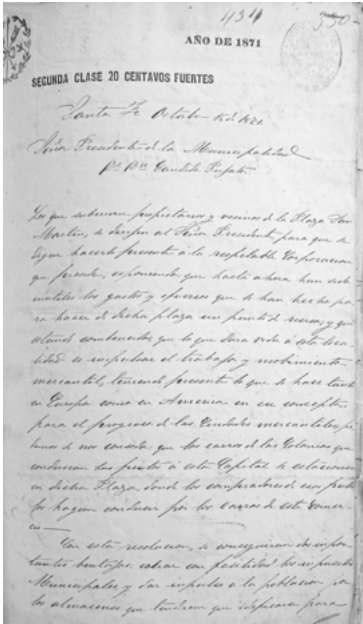 434
330
AÑO DE 1871
SEGUNDA CLASE 20 CENTAVOS FUERTES
Santa Fe Octubre 15 de
Señor Presidente de la Municipalidad
Dn Candido Pujato
Los que subscriven propietarios y vecinos de la Plaza San
Martin, se dirijen al Señor Presidente para que se
digne hacerle presente á la respetable Corporacion
que preside, esponiendo que hasta ahora han sido
inutiles los gastos y esfuerzos que se han hecho pa
ra hacer de dicha plaza un punto de recreo, y que
estando combencidos que lo que dara vida á esta loca
lidad es el trabajo y mobimiento
mercantil, teniendo presente lo que se hace tanto
en Europa como en America en ese concepto,
para el progreso de las Ciudades mercantiles pe
dimos se nos conceda: que los carros de las Colonias que
conducen sus frutos á esta Capital se estacionen
en dicha Plaza, donde los compradores de esos frutos
los hagan conducir por los carros de este comer
cio
Con esta resolucion, se conseguiran dos impor
tantes bentajas: cobrar con facilidad los impuestos
Municipales y dar impulso a la poblacion con
los almacenes que tendran que edificarse para